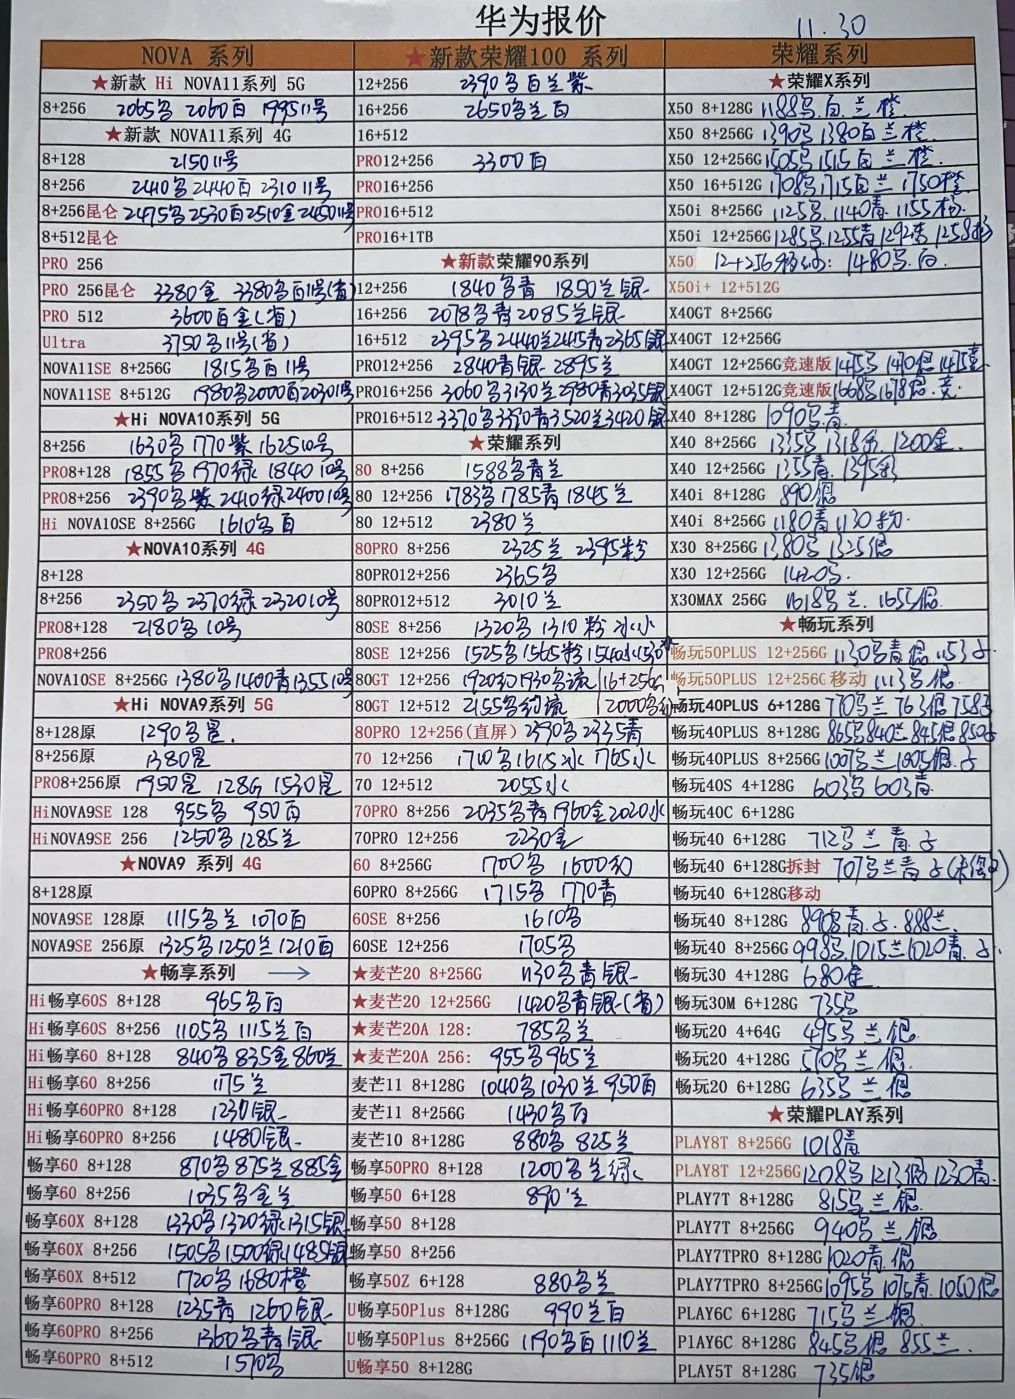 华为报价
11.30
NOVA 系列
★新款 Hi NOVA11系列 5G
8+256 2065名 2060百 1995 11号
★新款 NOVA11系列 4G
8+128 2150 11号
8+256 2410名 2440百 2310 11号
8+256昆仑 2475名 2530百 2510金 2450 11号
8+512昆仑
PRO 256
PRO 256昆仑 3380金 3380名百11号(省)
PRO 512 3600百金(省)
Ultra 3750名11号(省)
NOVA11SE 8+256G 1815名百11号
NOVA11SE 8+512G 1980名2000百2030 11号
★Hi NOVA10系列 5G
8+256 1630名 1770紫 1625 10号
PRO8+128 1855名 1970绿 1840 10号
PRO8+256 2390名紫 2410绿 2400 10号
Hi NOVA10SE 8+256G 1610名百
★NOVA10系列 4G
8+128
8+256 2350名 2370绿 2320 10号
PRO8+128 2180名10号
PRO8+256
NOVA10SE 8+256G 1380名1400青1355 10号
★Hi NOVA9系列 5G
8+128原 1290名星.
8+256原 1380星
PRO8+256原 1950星 128G 1530星
HiNOVA9SE 128 955名 950百
HiNOVA9SE 256 1250名 1285兰
★NOVA9 系列 4G
8+128原
NOVA9SE 128原 1115名兰 1070百
NOVA9SE 256原 1325名1250兰1210百
★畅享系列 →
Hi畅享60S 8+128 965名百
Hi畅享60S 8+256 1105名 1115兰百
Hi畅享60 8+128 840名 835金 860兰
Hi畅享60 8+256 1175兰
Hi畅享60PRO 8+128 1230银
Hi畅享60PRO 8+256 1480银
畅享60 8+128 870名 875兰 885金
畅享60 8+256 1035名金兰
畅享60X 8+128 1330名1320绿1315银
畅享60X 8+256 1505名1500绿1485银
畅享60X 8+512 1720名 1680橙
畅享60PRO 8+128 1235青 1260银
畅享60PRO 8+256 1360名青银
畅享60PRO 8+512 1570名
★新款荣耀100 系列
12+256 2390名百兰紫
16+256 2650名兰百
16+512
PRO12+256 3300百
PRO16+256
PRO16+512
PRO16+1TB
★新款荣耀90系列
12+256 1840名青 1850兰银
16+256 2078名青2085兰银
16+512 2395名2440兰2415青2365银
PRO12+256 2840青银 2895兰
PRO16+256 3060名3130兰2980青3035银
PRO16+512 3370名3370青3520兰3420银
★荣耀系列
80 8+256 1588名青兰
80 12+256 1783名1785青1845兰
80 12+512 2380兰
80PRO 8+256 2325兰 2395粉
80PRO12+256 2365名
80PRO12+512 3010兰
80SE 8+256 1320名 1310粉 冰
80SE 12+256 1525名1565粉1540
80GT 12+256 1920 1930名流
16+256G
80GT 12+512 2155名 流
2000名
80PRO 12+256(直屏) 2390名 2335青
70 12+256 1710名1615冰 1765
70 12+512 2055水
70PRO 8+256 2035名青1960金2020水
70PRO 12+256 2230金
60 8+256G 1700名 1600
60PRO 8+256G 1715名 1770青
60SE 8+256 1610名
60SE 12+256 1705名
★麦芒20 8+256G 1130名青银
★麦芒20 12+256G 1420名青银(省)
★麦芒20A 128: 785名兰
★麦芒20A 256: 955名965兰
麦芒11 8+128G 1040名1030兰950百
麦芒11 8+256G 1430名百
麦芒10 8+128G 880名 825兰
畅享50PRO 8+128 1200名兰绿
畅享50 6+128 890兰
畅享50 8+128
畅享50 8+256
畅享50Z 6+128 880名兰
U畅享50Plus 8+128G 990兰百
U畅享50Plus 8+256G 1190名百1110兰
U畅享50 8+128G
荣耀系列
★荣耀X系列
X50 8+128G 1188名.百.兰.橙
X50 8+256G 1390名1380百兰橙
X50 12+256G 1505名1515百兰橙.
X50 16+512G 1708名1715百兰1750橙
X50i 8+256G 1125名.1140青.1155粉.
X50i 12+256G 1285名.1255青1292 1258粉
X50 12+256 : 1480名.百.
X50i+ 12+512G
X40GT 8+256G
X40GT 12+256G
X40GT 12+256G竞速版 1475名1470银1475竞
X40GT 12+512G竞速版 1668名1678银.竞
X40 8+128G 1090名.青.
X40 8+256G 1335名.1318 1200金.
X40 12+256G 1355青.1395
X40i 8+128G 890银
X40i 8+256G 1180青1130粉.
X30 8+256G 1380名1325银
X30 12+256G 1420名.
X30MAX 256G 1618名兰.1655银.
★畅玩系列
畅玩50PLUS 12+256G 1130名青银.1153子
畅玩50PLUS 12+256G移动 1113名银
畅玩40PLUS 6+128G 770名763银758子
畅玩40PLUS 8+128G 865名840兰845银850子
畅玩40PLUS 8+256G 1007名兰1005银.子
畅玩40S 4+128G 603名603青.
畅玩40C 6+128G
畅玩40 6+128G 712名兰青子
畅玩40 6+128G拆封 707名兰青子
畅玩40 6+128G移动
畅玩40 8+128G 890名青.子.888兰.
畅玩40 8+256G 998名1015兰1020青.子.
畅玩30 4+128G 680金
畅玩30M 6+128G 735名
畅玩20 4+64G 495名兰银
畅玩20 4+128G 570名兰银.
畅玩20 6+128G 635名兰银
★荣耀PLAY系列
PLAY8T 8+256G 1018青
PLAY8T 12+256G 1208名1213银1230青.
PLAY7T 8+128G 815名兰银.
PLAY7T 8+256G 940名兰银
PLAY7TPRO 8+128G 1020青.银
PLAY7TPRO 8+256G 1095名1075青.1050银
PLAY6C 6+128G 715名兰银
PlAY6C 8+128G 845名银855兰.
PLAY5T 8+128G 735银